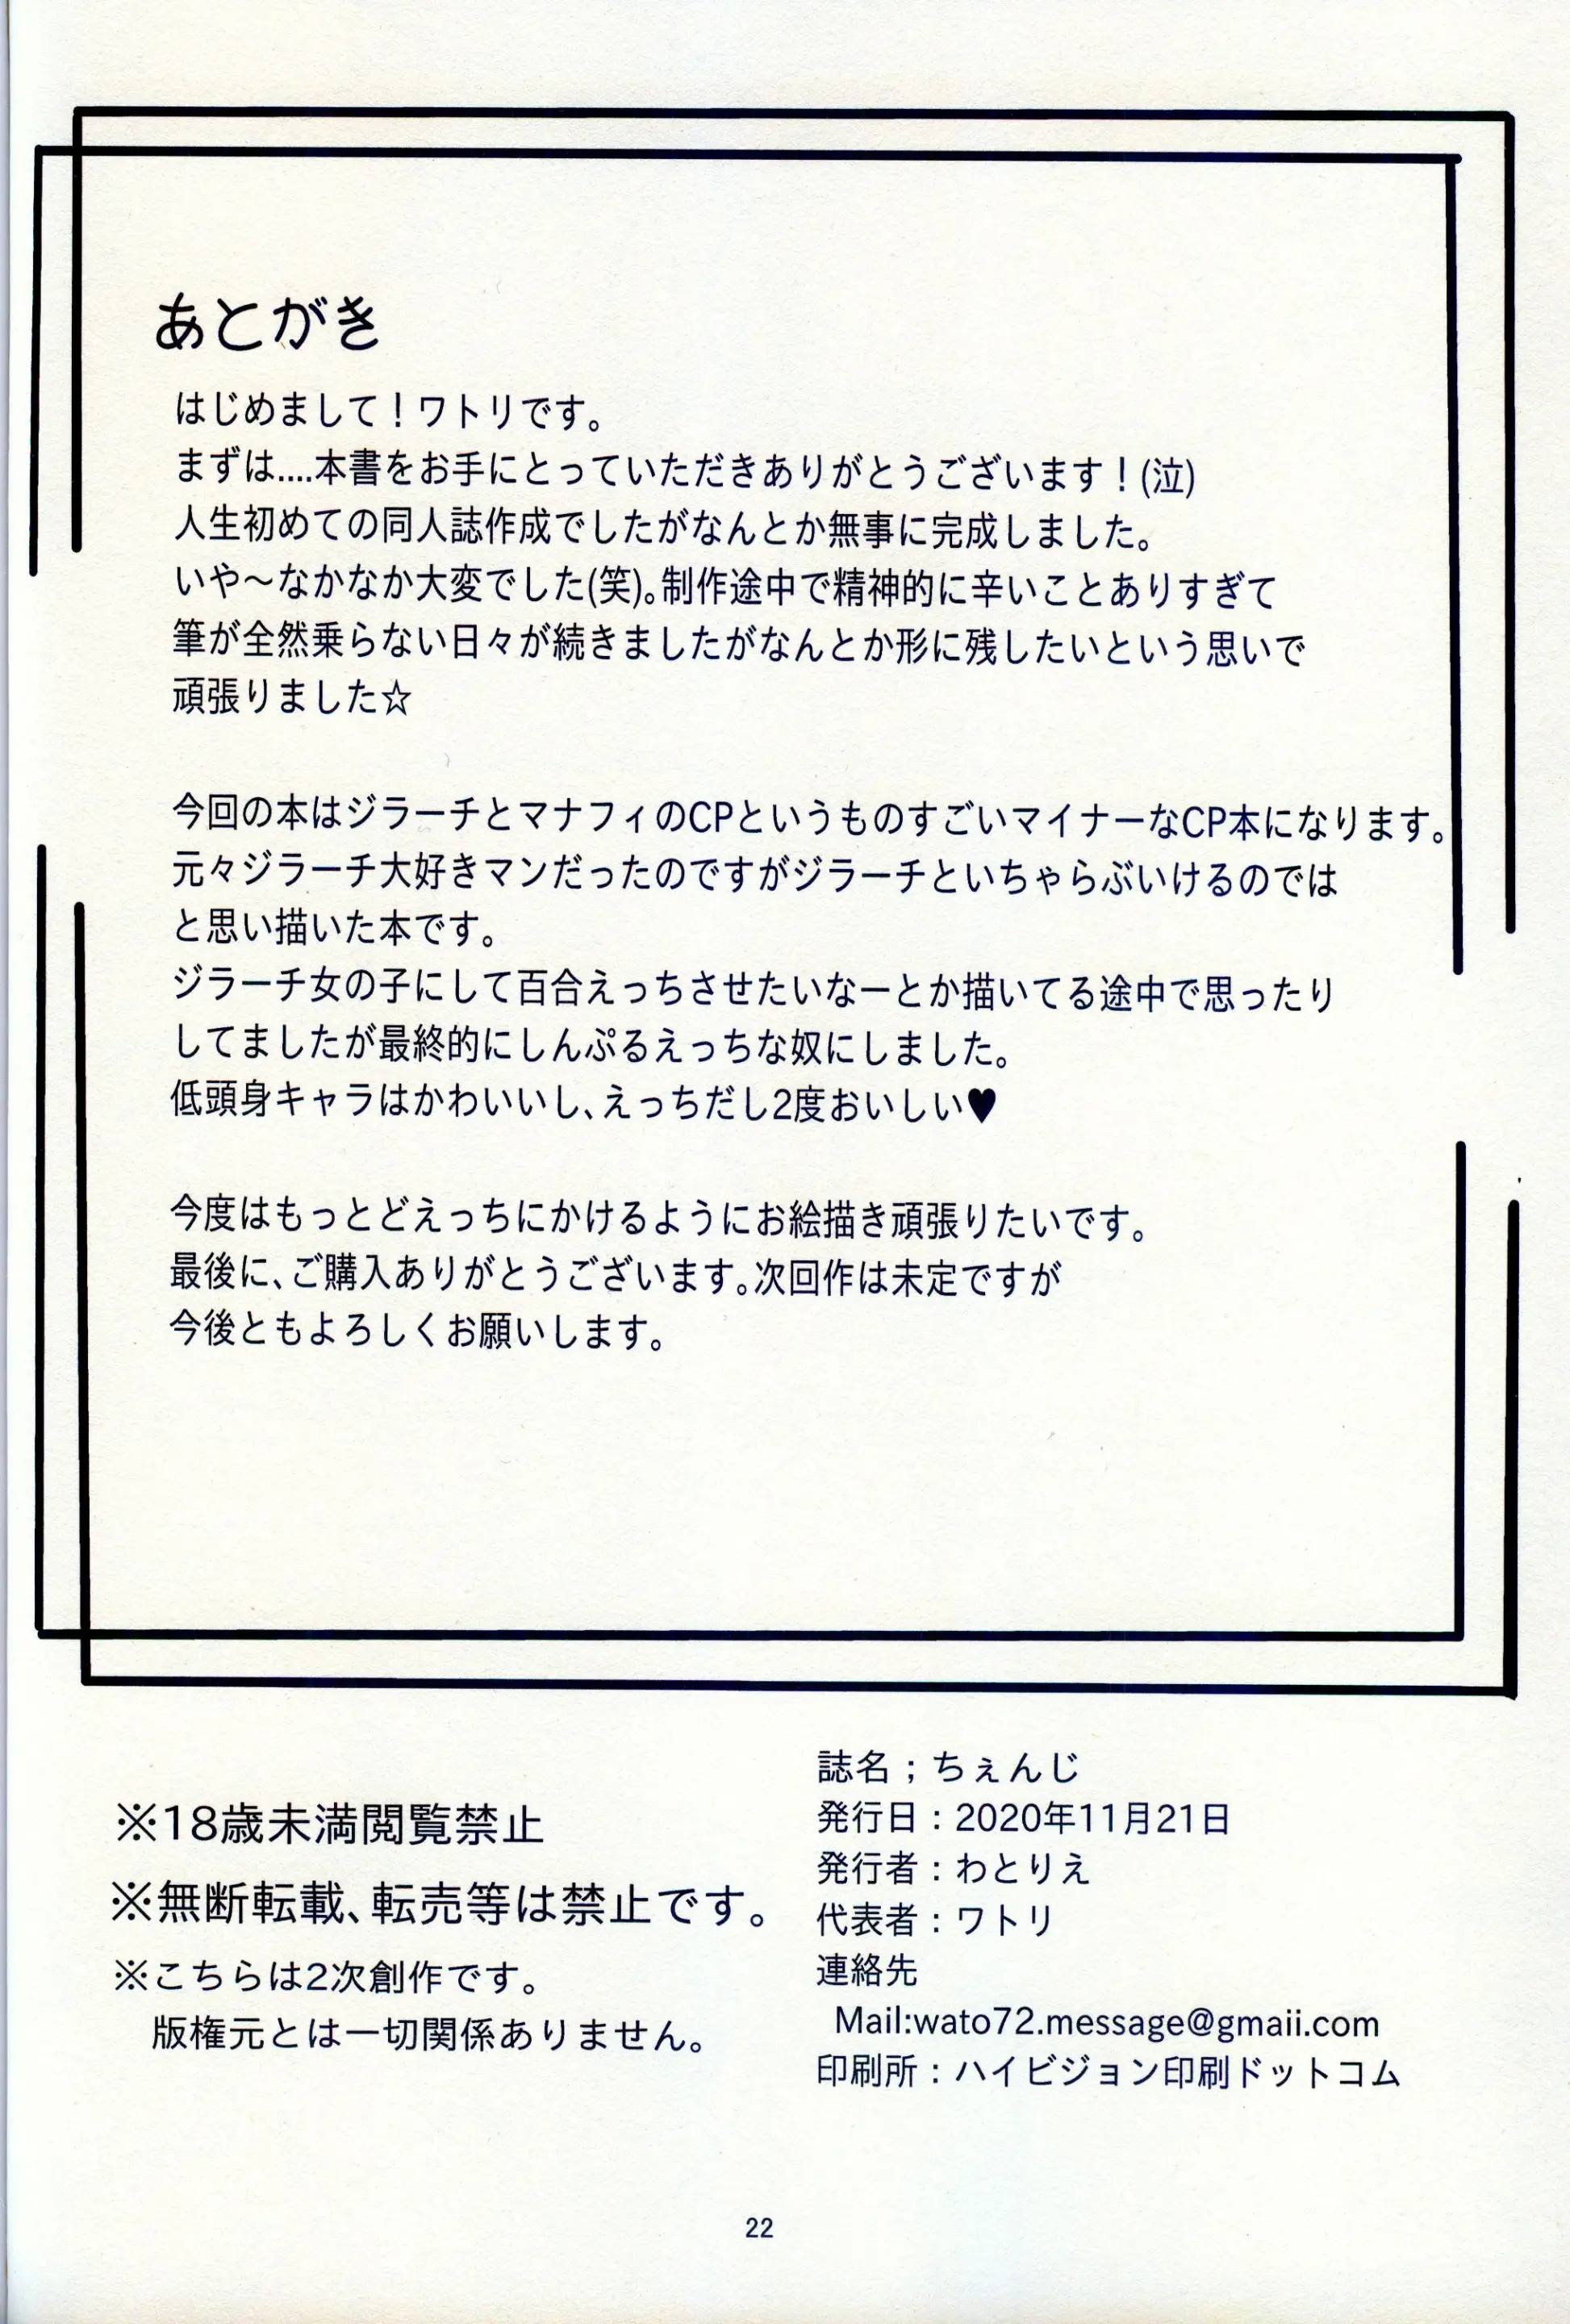 あとがき
はじめまして！ワトリです。
まずは....本書をお手にとっていただきありがとうございます！(泣)
人生初めての同人誌作成でしたがなんとか無事に完成しました。
いや～なかなか大変でした(笑)。制作途中で精神的に辛いことありすぎて
筆が全然乗らない日々が続きましたがなんとか形に残したいという思いで
頑張りました☆
今回の本はジラーチとマナフィのCPというものすごいマイナーなCP本になります。
元々ジラーチ大好きマンだったのですがジラーチといちゃらぶいけるのでは
と思い描いた本です。
ジラーチ女の子にして百合えっちさせたいなーとか描いてる途中で思ったり
してましたが最終的にしんぷるえっちな奴にしました。
低頭身キャラはかわいいし、えっちだし2度おいしい♥
今度はもっとどえっちにかけるようにお絵描き頑張りたいです。
最後に、ご購入ありがとうございます。次回作は未定ですが
今後ともよろしくお願いします。
※18歳未満閲覧禁止
※無断転載、転売等は禁止です。
※こちらは2次創作です。
版権元とは一切関係ありません。
誌名；ちぇんじ
発行日：2020年11月21日
発行者：わとりえ
代表者：ワトリ
連絡先
Mail:wato72.message@gmaii.com
印刷所：ハイビジョン印刷ドットコム
22